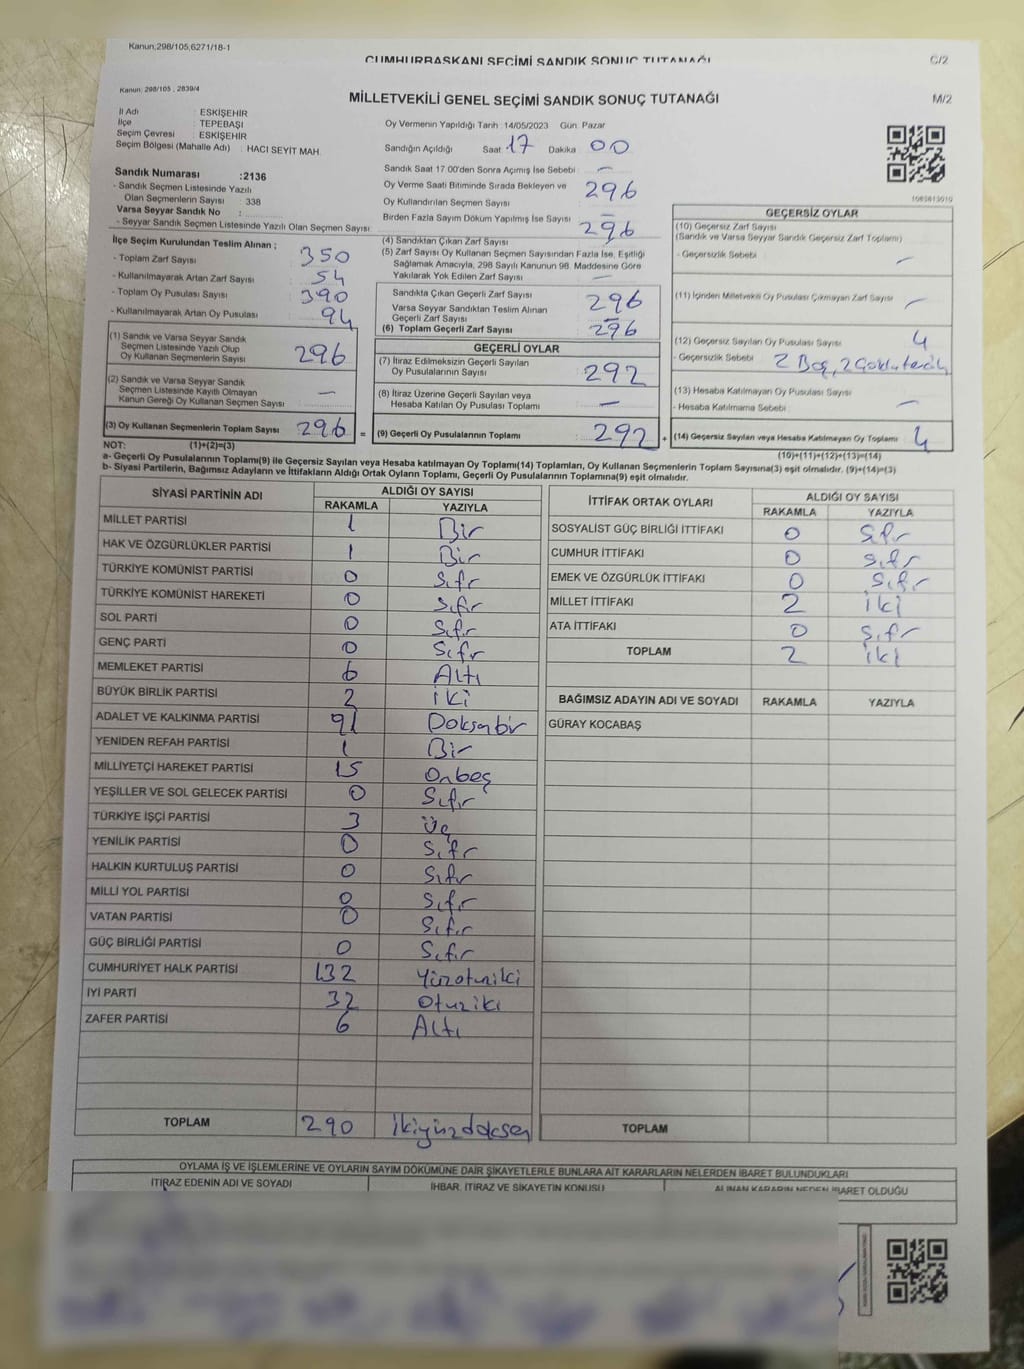 Kanun;298/105,6271/18-1
CUMHURBAŞKANI SEÇİMİ SANDIK SONUÇ TUTANAĞI
C/2
Kanun: 298/105 , 2839/4
MİLLETVEKİLİ GENEL SEÇİMİ SANDIK SONUÇ TUTANAĞI
M/2
İl Adı : ESKİŞEHİR
İlçe : TEPEBAŞI
Seçim Çevresi : ESKİŞEHİR
Seçim Bölgesi (Mahalle Adı) : HACI SEYİT MAH.
Oy Vermenin Yapıldığı Tarih :14/05/2023 Gün: Pazar
Sandığın Açıldığı Saat 17 Dakika 00
Sandık Saat 17.00'den Sonra Açımış İse Sebebi : —
Oy Verme Saati Bitiminde Sırada Bekleyen ve
Oy Kullandırılan Seçmen Sayısı : 296
Birden Fazla Sayım Döküm Yapılmış İse Sayısı : —
Sandık Numarası :2136
- Sandık Seçmen Listesinde Yazılı
Olan Seçmenlerin Sayısı : 338
Varsa Seyyar Sandık No :
- Seyyar Sandık Seçmen Listesinde Yazılı Olan Seçmen Sayısı :
İlçe Seçim Kurulundan Teslim Alınan ;
- Toplam Zarf Sayısı : 350
- Kullanılmayarak Artan Zarf Sayısı : 54
- Toplam Oy Pusulası Sayısı : 390
- Kullanılmayarak Artan Oy Pusulası : 94
(1) Sandık ve Varsa Seyyar Sandık
Seçmen Listesinde Yazılı Olup
Oy Kullanan Seçmenlerin Sayısı : 296
(2) Sandık ve Varsa Seyyar Sandık
Seçmen Listesinde Kayıtlı Olmayan
Kanun Gereği Oy Kullanan Seçmen Sayısı : —
(3) Oy Kullanan Seçmenlerin Toplam Sayısı : 296
(4) Sandıktan Çıkan Zarf Sayısı : 296
(5) Zarf Sayısı Oy Kullanan Seçmen Sayısından Fazla İse, Eşitliği
Sağlamak Amacıyla, 298 Sayılı Kanunun 98. Maddesine Göre
Yakılarak Yok Edilen Zarf Sayısı : —
Sandıkta Çıkan Geçerli Zarf Sayısı : 296
Varsa Seyyar Sandıktan Teslim Alınan
Geçerli Zarf Sayısı : —
(6) Toplam Geçerli Zarf Sayısı : 296
GEÇERLİ OYLAR
(7) İtiraz Edilmeksizin Geçerli Sayılan
Oy Pusulalarının Sayısı : 292
(8) İtiraz Üzerine Geçerli Sayılan veya
Hesaba Katılan Oy Pusulası Toplamı : —
= (9) Geçerli Oy Pusulalarının Toplamı : 292 +
GEÇERSİZ OYLAR
(10) Geçersiz Zarf Sayısı
(Sandık ve Varsa Seyyar Sandık Geçersiz Zarf Toplamı)
- Geçersizlik Sebebi : —
(11) İçinden Milletvekili Oy Pusulası Çıkmayan Zarf Sayısı : —
(12) Geçersiz Sayılan Oy Pusulası Sayısı : 4
- Geçersizlik Sebebi : 2 Boş, 2 Çoklu tercih
(13) Hesaba Katılmayan Oy Pusulası Sayısı : —
- Hesaba Katılmama Sebebi :
(14) Geçersiz Sayılan veya Hesaba Katılmayan Oy Toplamı : 4
NOT: (1)+(2)=(3)
(10)+(11)+(12)+(13)=(14)
a- Geçerli Oy Pusulasının Toplamı(9) ile Geçersiz Sayılan veya Hesaba katılmayan Oy Toplamı(14) Toplamları, Oy Kullanan Seçmenlerin Toplam Sayısına(3) eşit olmalıdır. (9)+(14)=(3)
b- Siyasi Partilerin, Bağımsız Adayların ve İttifakların Aldığı Ortak Oyların Toplamı, Geçerli Oy Pusulalarının Toplamına(9) eşit olmalıdır.
SİYASİ PARTİNİN ADI ALDIĞI OY SAYISI
RAKAMLA YAZIYLA
MİLLET PARTİSİ 1 Bir
HAK VE ÖZGÜRLÜKLER PARTİSİ 1 Bir
TÜRKİYE KOMÜNİST PARTİSİ 0 Sıfır
TÜRKİYE KOMÜNİST HAREKETİ 0 Sıfır
SOL PARTİ 0 Sıfır
GENÇ PARTİ 0 Sıfır
MEMLEKET PARTİSİ 6 Altı
BÜYÜK BİRLİK PARTİSİ 2 İki
ADALET VE KALKINMA PARTİSİ 91 Doksanbir
YENİDEN REFAH PARTİSİ 1 Bir
MİLLİYETÇİ HAREKET PARTİSİ 15 Onbeş
YEŞİLLER VE SOL GELECEK PARTİSİ 0 Sıfır
TÜRKİYE İŞÇİ PARTİSİ 3 Üç
YENİLİK PARTİSİ 0 Sıfır
HALKIN KURTULUŞ PARTİSİ 0 Sıfır
MİLLİ YOL PARTİSİ 0 Sıfır
VATAN PARTİSİ 0 Sıfır
GÜÇ BİRLİĞİ PARTİSİ 0 Sıfır
CUMHURİYET HALK PARTİSİ 132 Yüzotuziki
İYİ PARTİ 32 Otuziki
ZAFER PARTİSİ 6 Altı
TOPLAM 290 İkiyüzdoksan
İTTİFAK ORTAK OYLARI ALDIĞI OY SAYISI
RAKAMLA YAZIYLA
SOSYALİST GÜÇ BİRLİĞİ İTTİFAKI 0 Sıfır
CUMHUR İTTİFAKI 0 Sıfır
EMEK VE ÖZGÜRLÜK İTTİFAKI 0 Sıfır
MİLLET İTTİFAKI 2 İki
ATA İTTİFAKI 0 Sıfır
TOPLAM 2 İki
BAĞIMSIZ ADAYIN ADI VE SOYADI RAKAMLA YAZIYLA
GÜRAY KOCABAŞ
TOPLAM
OYLAMA İŞ VE İŞLEMLERİNE VE OYLARIN SAYIM DÖKÜMÜNE DAİR ŞİKAYETLERLE BUNLARA AİT KARARLARIN NELERDEN İBARET BULUNDUKLARI
İTİRAZ EDENİN ADI VE SOYADI İHBAR, İTİRAZ VE ŞİKAYETİN KONUSU ALINAN KARARIN NEDEN İBARET OLDUĞU